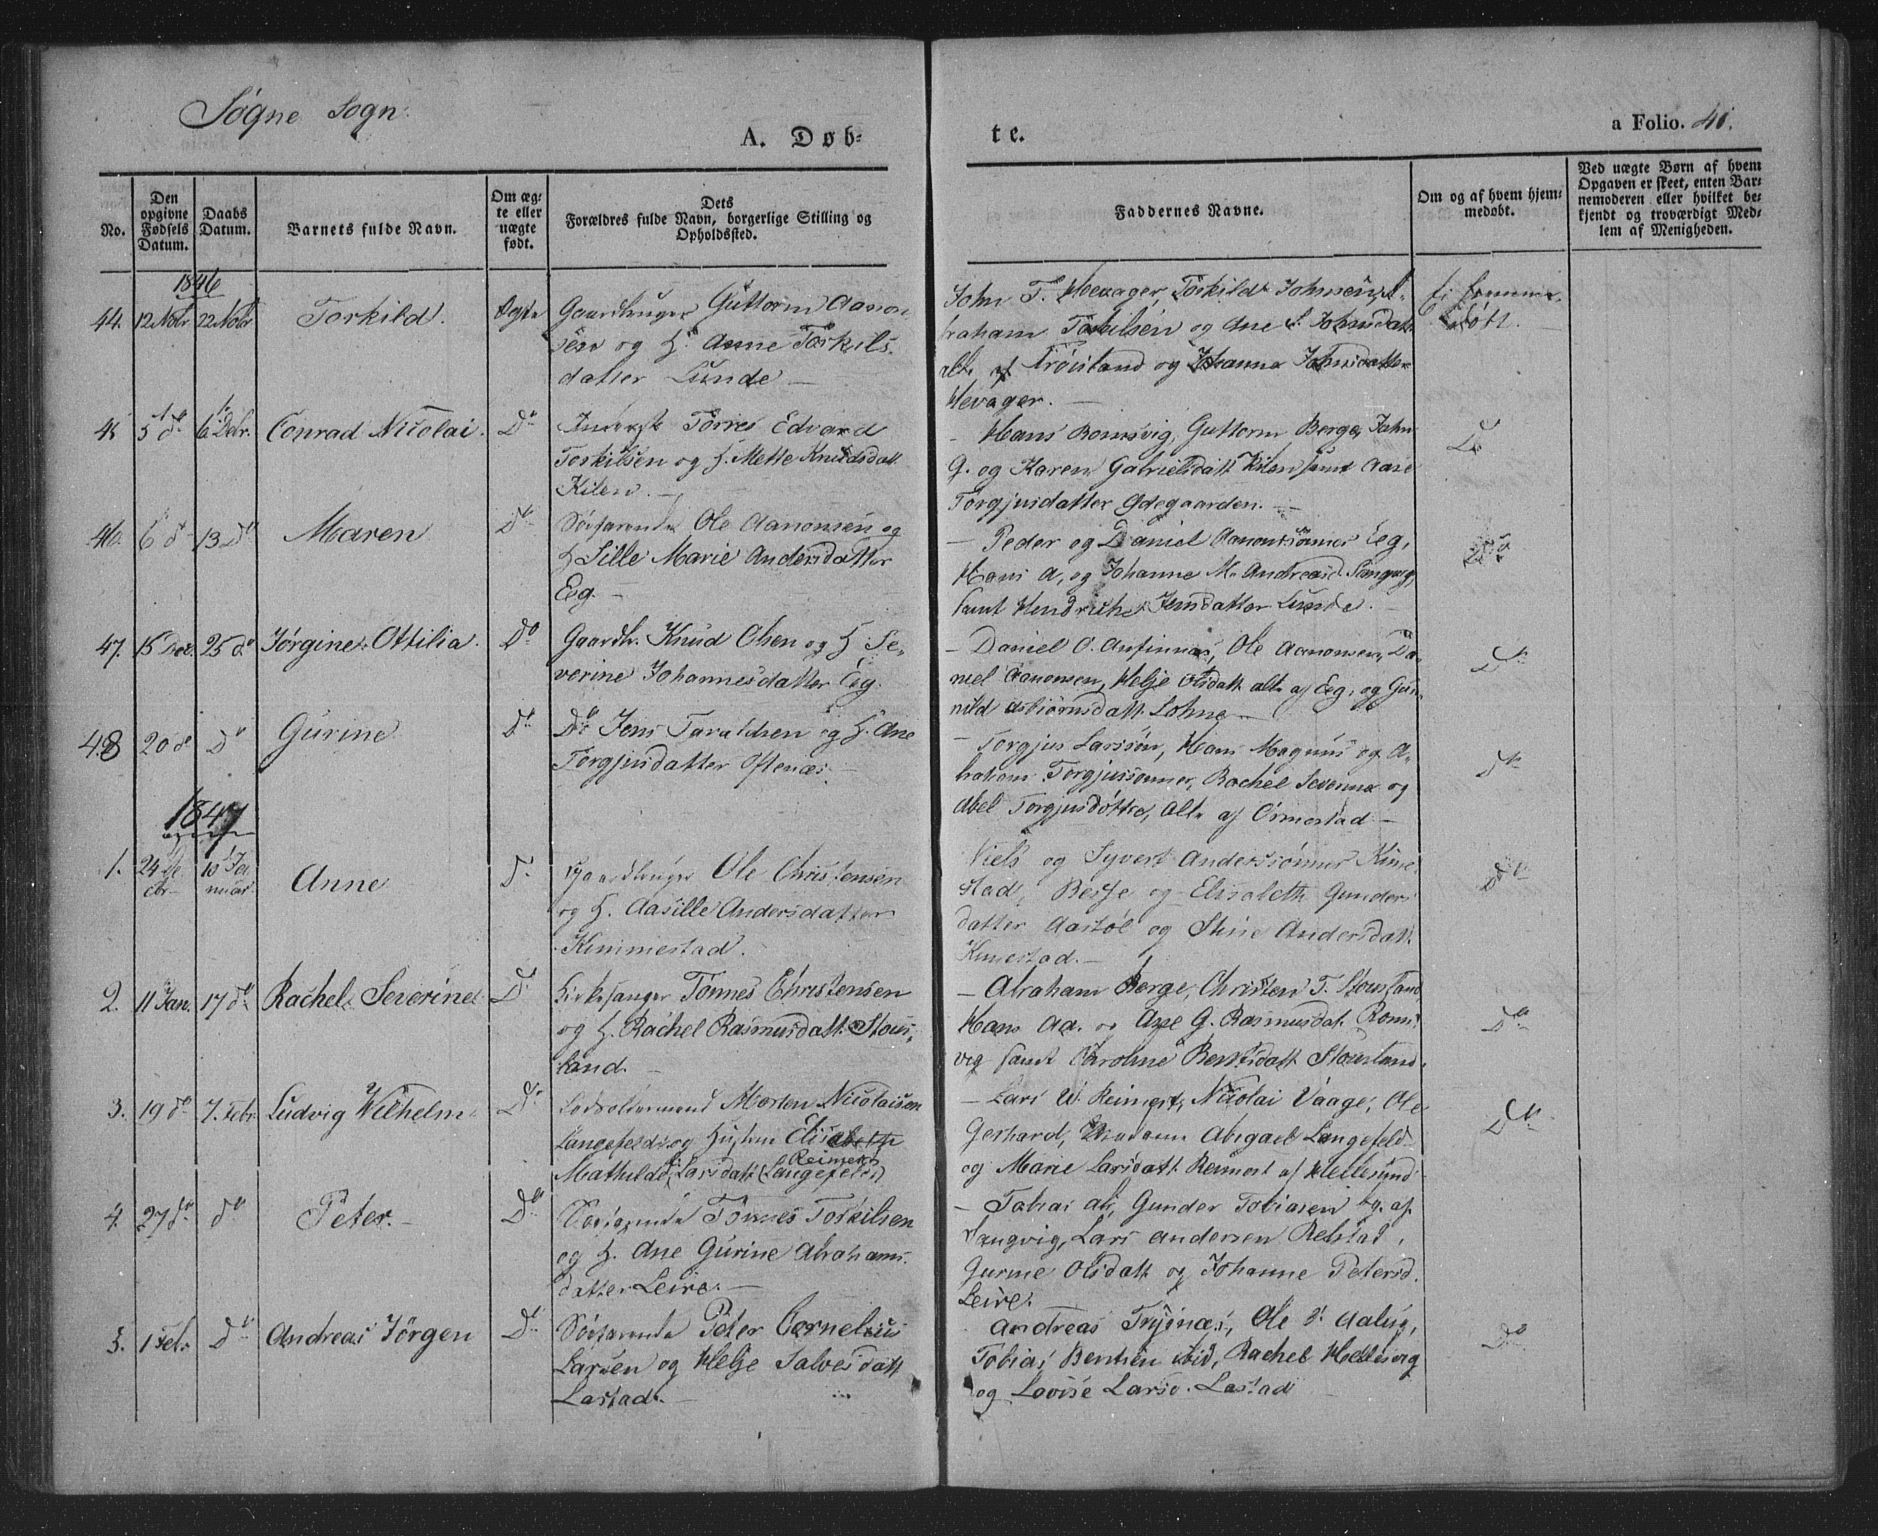 Søgne Sogn.
A. Døb-
te.
a Folio. 41.
No.
Den opgivne Fødsels Datum.
Daabs Datum.
Barnets fulde Navn.
Om ægte eller uægte født.
Dets Forældres fulde Navn, borgerlige Stilling og Opholdssted.
Faddernes Navne.
Om og af hvem hjemmedøbt.
Ved uægte Børn af hvem Opgaven er skeet, enten Barnemoderen eller hvilket bekjendt og troværdigt Medlem af Menigheden.
1846
44. 12 Novbr 22 Novbr Torkild. Ægte Gaardbruger Guttorm Aanon-
sen og H. Anne Torkils-
datter Lunde —
John T. Hevager, Torkild Johnsen, A-
braham Torkilsen og Ane S. Johnsdatt
alle af Trøisland og Johanna Johnsdatter
Hevager. —
Ei hjemme-
døbt.
45 5 do 6 Debr. Conrad Nicolai. Do Tørres Edvard
Torkilsen og H. Mette Knudsdatt.
Kilen. —
- Hans Romsvig, Guttorm Berge, John
G. og Karen Gabrielsdatt Kilen samt Aase
Torgjusdatter Ødegaarden. —
Do
46. 6 do 13 Do Maren Do Søefarende Ole Aanonsen og
H Sille Marie Andersdatter
Eeg. —
- Peder og Daniel Aanonsønner Eeg,
Hans A. og Johanne M. Andreasd. Langvig,
samt Hendrikke Jensdatter Lunde.
Do
47. 15 Dec. 25 do Jørgine Ottilia. Do Gaardbr. Knud Olsen og H. Se-
verine Johannesdatter Eeg.
- Daniel O. Anfinnæs, Ole Aanonsen, Da-
niel Aanonsen, Helje Olsdatt alle af Eeg, og Gun-
nild Asbiørnsdatt. Lohne —
Do
48 20 do Do Gurine Do Do Jens Taraldsen og H. Ane
Torgjusdatter Oftenæs. —
- Torgjus Larssøn, Hans Magnus og A-
braham Torgjussønner, Rachel Severine og
Abel Torgjusdøttre, Alle af Ormestad —
Do
1847
1. 24 De-
cbr 10 Ja-
nuar Anne Do Gaardbruger Ole Christensen
og H. Aasille Andersdatter
Kimmestad.
Niels og Syvert Anderssønner Kime-
stad, Berse og Elisabeth Gunders-
datter Aastøl og Stine Andersdatt.
Kimestad. —
Do
2. 11 Jan. 17 do Rachel Severine Do Kirkesanger Tønnes Christensen
og H. Rachel Rasmusdatt. Stous-
land. —
- Abraham Berge, Christen T. Stousland
Hans Aa. og Ane G. Rasmusdat. Roms-
vig samt Caroline Berntsdatt Stousland.
Do
3. 19 do 7. Febr Ludvig Wilhelm Do Lodsoldermand Morten Nicolaisen
Langefeldt og Hustru Elisabeth
Mathilde Larsdatt (Langefeldt) Reimers
- Lars W. Reimers, Nicolai Vaage, Ole
Gerhard, Madame Abigael Langefeld
og Marie Larsdatt Reimers af Hellesund
Do
4. 27 do do Peter. — Do Søefarende Tønnes Torkilsen
og H. Ane Gurine Abrahams-
datter Leire. —
- Tobias Gunder Tobiasen af
Langvig, Lars Andersen Relstad,
Gurine Olsdatt og Johanne Petersd.
Leire.
5. 1 Febr Do Andreas Jørgen Do Søefarende Peter Cornelius
Larsen og Helje Salvesdatt
Lastad. —
Andreas Tryjnæs, Ole Aalug,
Tobias Bentsen ibid, Rachel Hellesvig
og Lovise Larsd. Lastad
Do